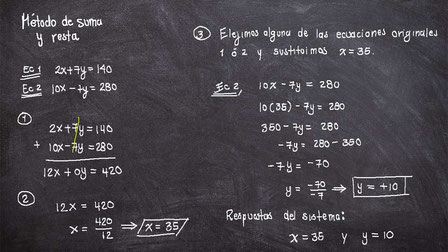 Método de suma
y resta
Ec 1 2x+7y=140
Ec 2 10x-7y=280
1
2x+7y=140
+ 10x-7y=280
12x+0y=420
2
12x=420
x=420/12 → x=35
3 Elejimos alguna de las ecuaciones originales
1 ó 2 y sustituimos x=35.
Ec 2, 10x-7y=280
10(35)-7y=280
350-7y=280
-7y=280-350
-7y=-70
y=-70/-7 → y=+10
Respuestas del sistema:
x=35 y y=10